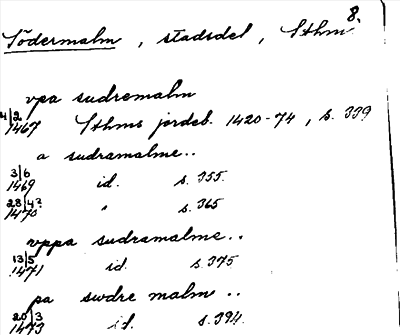 8.
Södermalm, stadsdel, Sthm
vpa sudremalm
4/2 1467 Sthms jordeb. 1420-74, s. 339
a sudramalme..
3/6 1469 id. s. 355.
28/4? 1470 " s. 365
vppa sudramalme..
13/5 1471 id. s. 375
pa swdre malm ..
20/3 1473 id. s. 394.